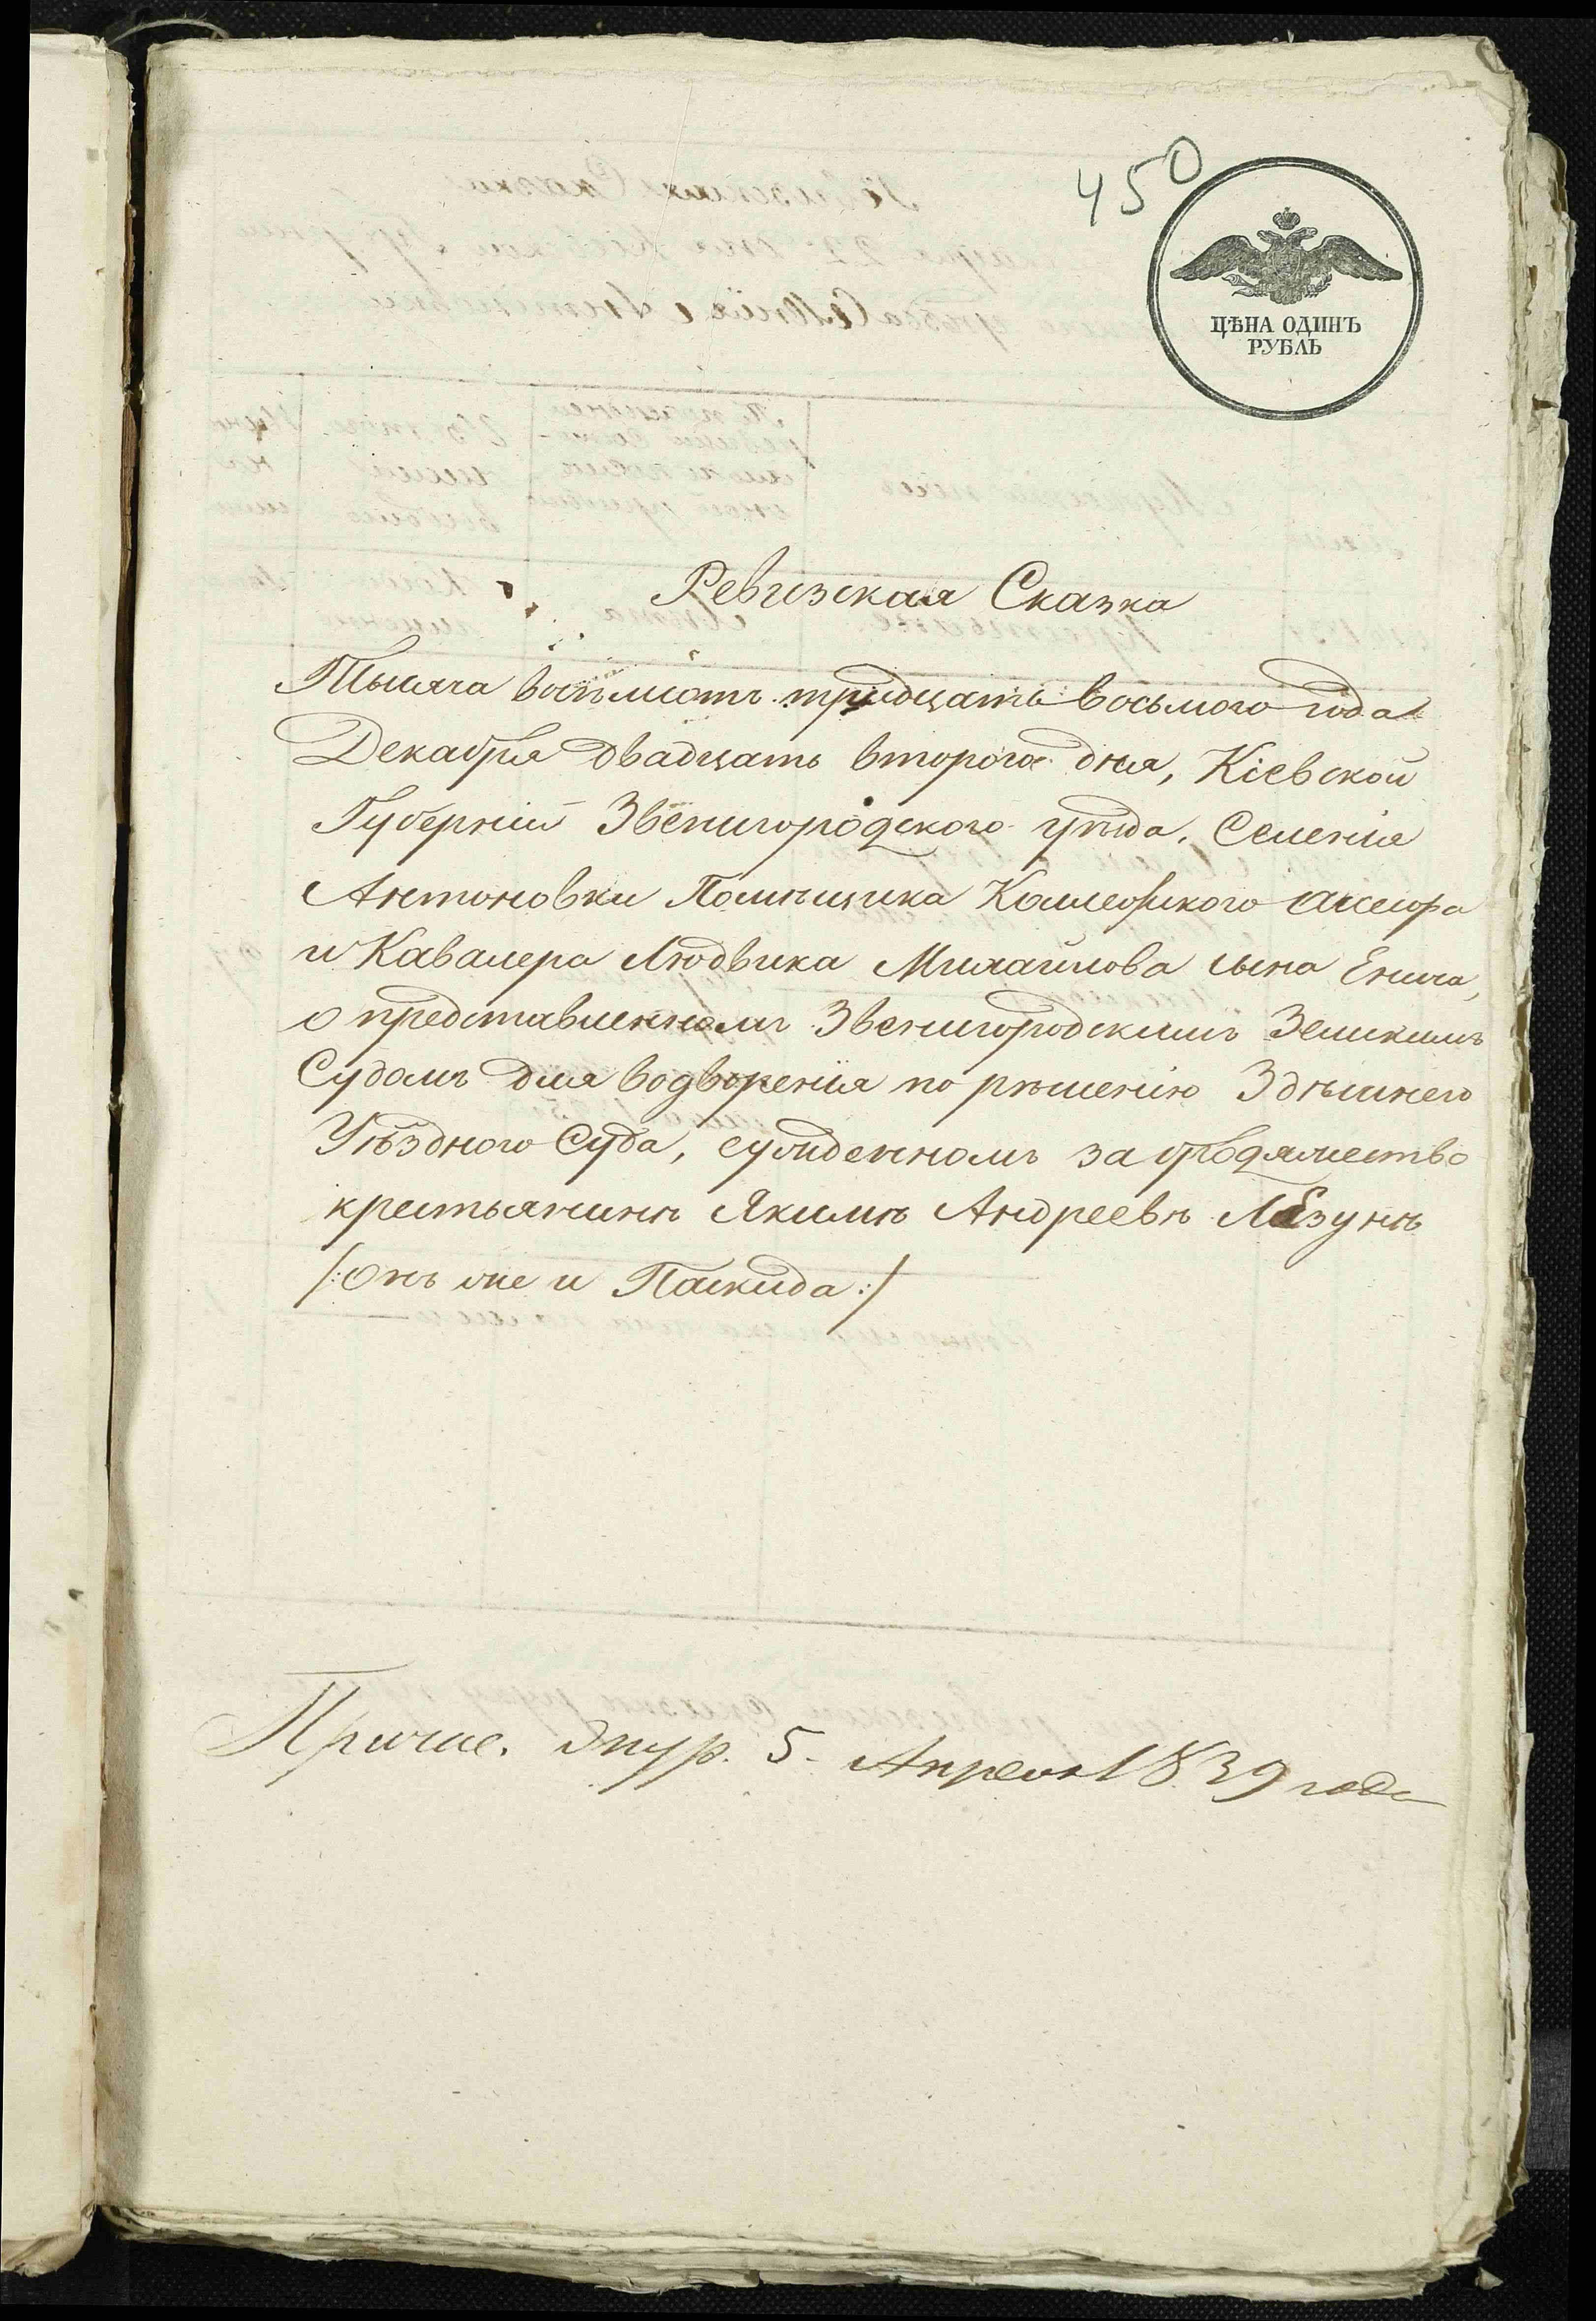 450
ЦѢНА ОДИНЪ
РУБЛЬ
Ревизская Сказка
Тысяча восемьсотъ тридцать восьмого года
Декабря двадцать второго дня, Кіевской
Губерніи Звенигородского уѣзда, Селенія
Антоновки Помѣщика Коллежского Ассесора
и Кавалера Людвика Михайлова сына Енича,
о представленномъ Звенигородскимъ Земскимъ
Судомъ для водворенія по рѣшенію Здѣшнего
Уѣздного Суда, сужденномъ за бродяжество
крестьянинѣ Якимѣ Андреевѣ Лазунѣ
/:Онъ же и Паскида:/
5. Апреля 1839 года